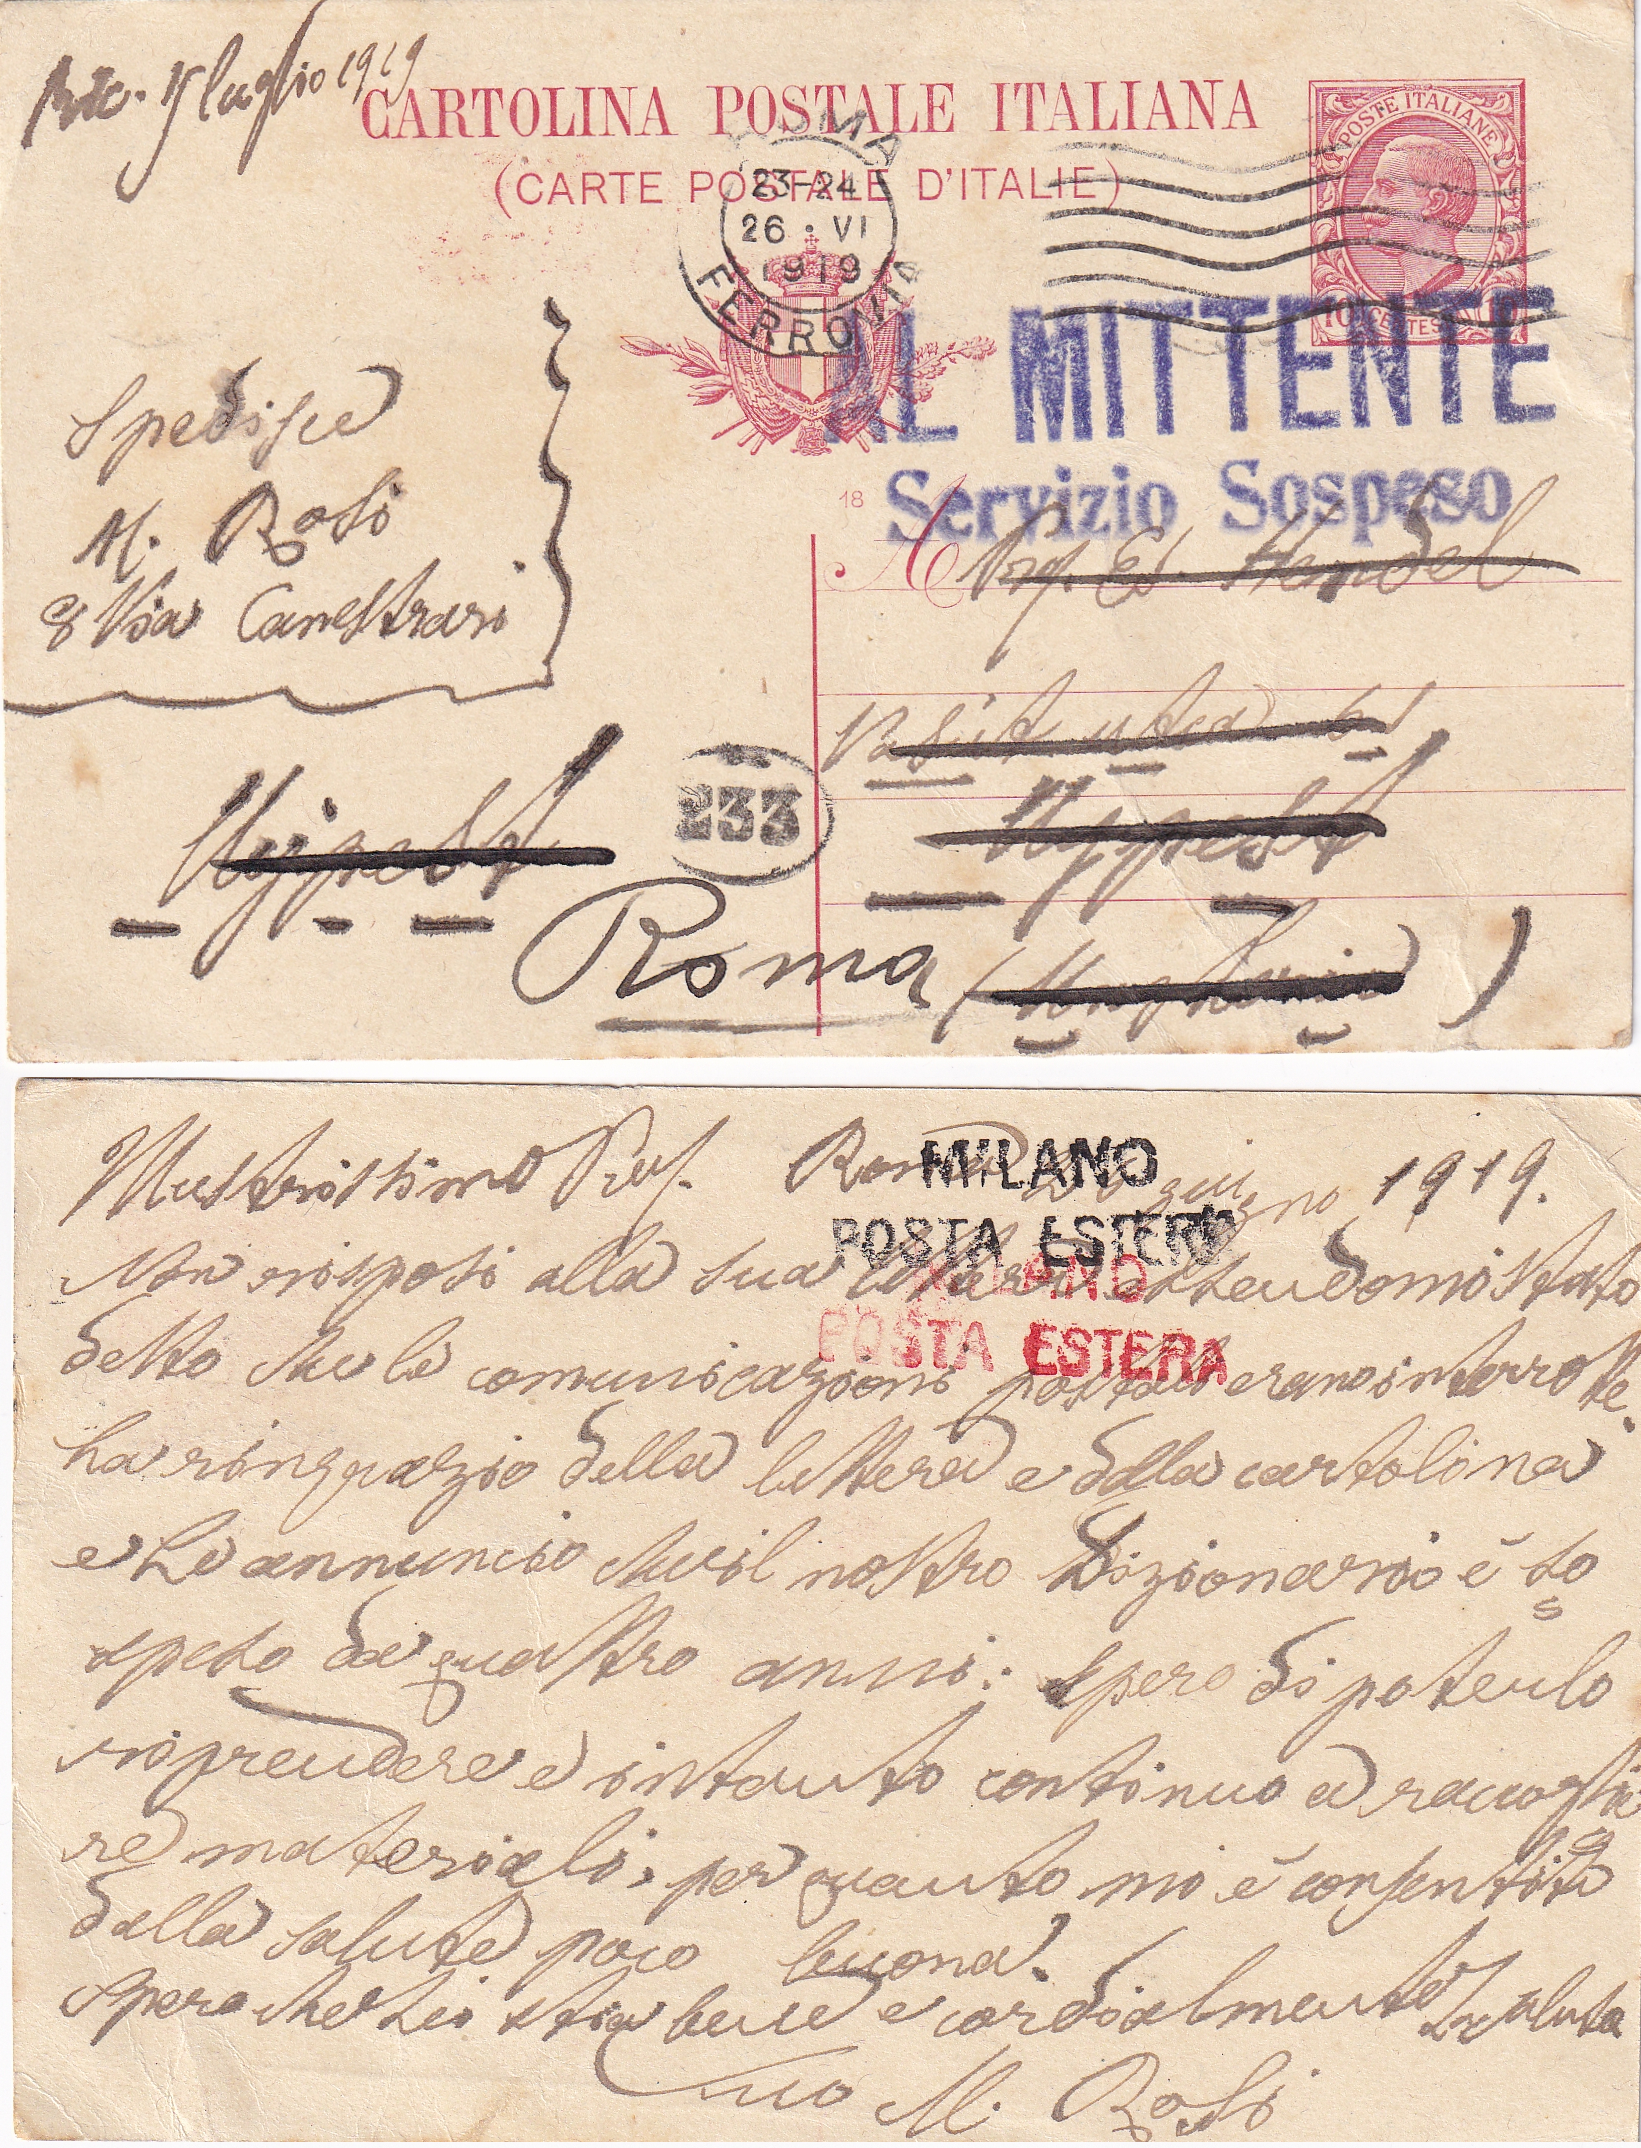 Ric. 15 luglio 1919
CARTOLINA POSTALE ITALIANA
(CARTE POSTALE D'ITALIE)
POSTE ITALIANE
10 CENTES 10
ROMA
23-24
26 · VI
1919
FERROVIA
AL MITTENTE
Servizio Sospeso
Spedisce
M. Rosi
8 Via Canestrari
18
A Prof. Ed. Hendel
utca
Ujpest
Ujpest
233
Roma
(Ungheria)
Illustrissimo Prof. Roma 26 giugno 1919.
MILANO
POSTA ESTERA
MILANO
POSTA ESTERA
Non risposi alla sua lettera essendomi stato
detto che le comunicazioni postali erano interrotte.
La ringrazio della lettera e della cartolina
e Le annuncio che il nostro Dizionario è so
speso da quattro anni. Spero di poterlo
riprendere e intanto continuo a raccoglie
re materiali, per quanto mi è consentito
dalla salute poco buona.
Spero che Lei stia bene e cordialmente La saluto
Suo M. Rosi